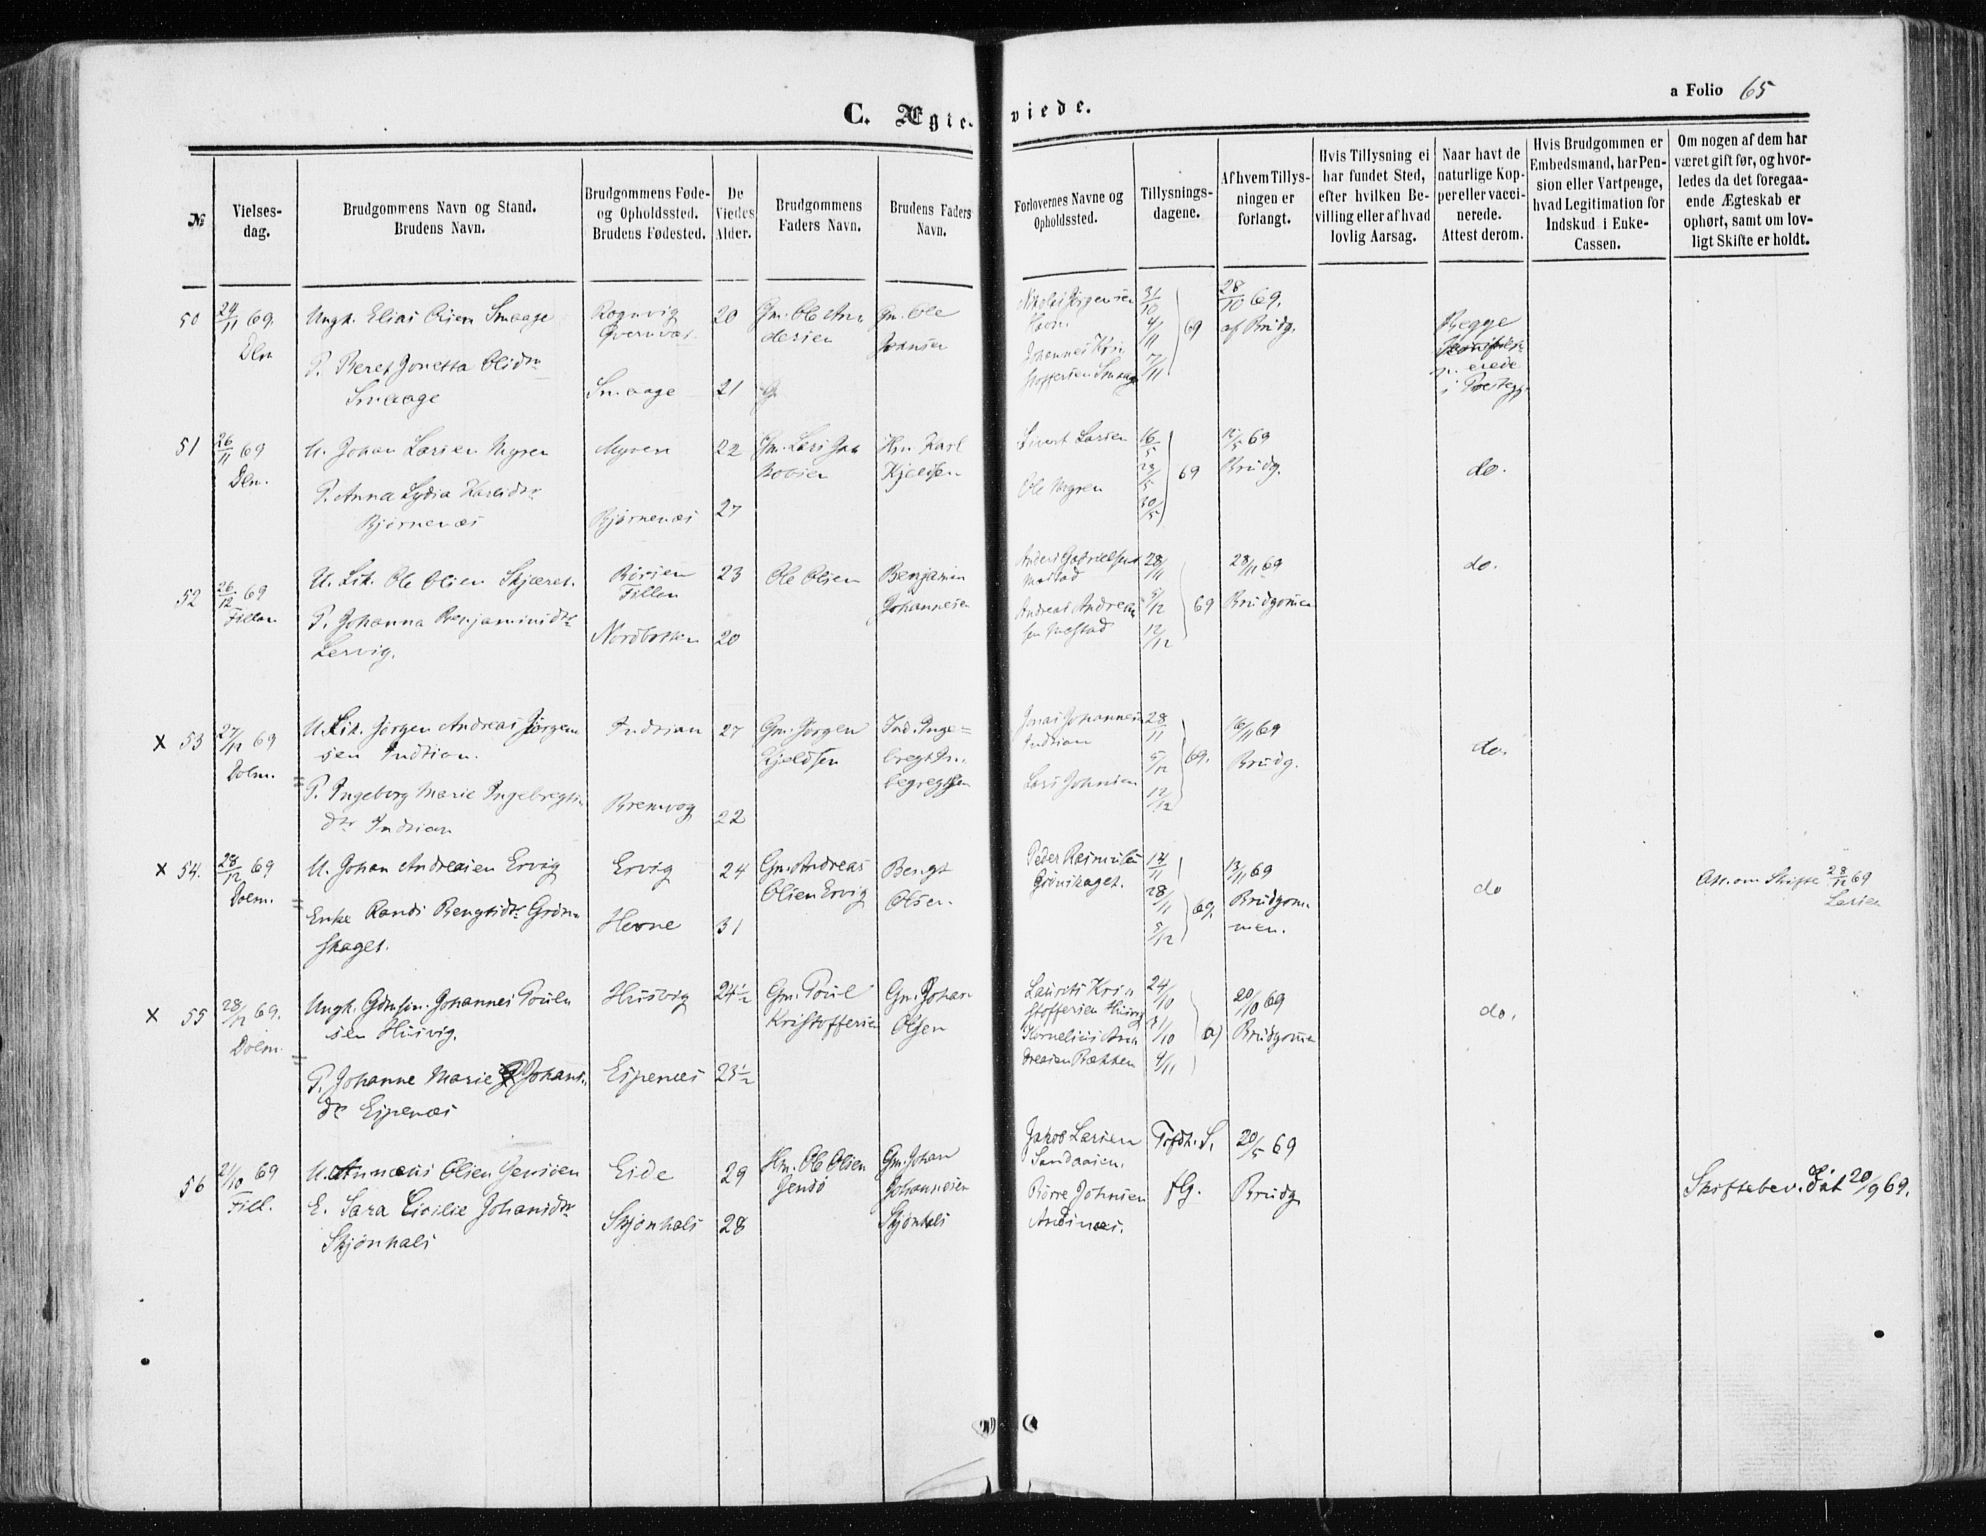 C. Ægte-viede.
a Folio 65
№
Vielses-
dag.
Brudgommens Navn og Stand.
Brudens Navn.
Brudgommens Føde-
og Opholdssted.
Brudens Fødested.
De
Viedes
Alder.
Brudgommens
Faders Navn.
Brudens Faders
Navn.
Forlovernes Navne og
Opholdssted.
Tillysnings-
dagene.
Af hvem Tillys-
ningen er
forlangt.
Hvis Tillysning ei
har fundet Sted,
efter hvilken Be-
villing eller af hvad
lovlig Aarsag.
Naar havt de
naturlige Kop-
per eller vacci-
nerede.
Attest derom.
Hvis Brudgommen er
Embedsmand, har Pen-
sion eller Vartpenge,
hvad Legitimation for
Indskud i Enke-
Cassen.
Om nogen af dem har
været gift før, og hvor-
ledes da det foregaa-
ende Ægteskab er
ophørt, samt om lov-
ligt Skifte er holdt.
50
24/11 69.
Dlm
Ungk. Elias Olsen Smaage
P. Beret Jonetta Olsdtr
Smaage
Smaage
20
21
Gm. Ole An-
dersen
Gm. Ole
Johnsen
Nikolai Jørgensen
Havn.
Johannes Kri-
stoffersen Smaage
31/10
4/11
7/11
69
28/10 69.
af Brudg.
Begge
i Protego
51
26/11 69
Dlm.
U. Johan Larsen Myren
P. Anna Lydia Karlsdtr
Bjørnenæs
Myren
Bjørnenæs
22
27
Gm. Lars Ja-
kobsen
Hm. Karl
Kjelsen
Sivert Larsen
Ole Myren
16/5
23/5
30/5
69
12/5 69
Brudg.
do.
52
26/12 69
Fillan
U. Lit. Ole Olsen Skjæret.
P. Johanna Benjaminsdtr
Lervig.
Børsen
Fillan
Nordbotten
23
20
Ole Olsen
Benjamin
Johannesen
Anders Gabrielsen
Mastad
Andreas Andrea-
sen Mastad
28/11
5/12
12/12
69
28/11 69
Brudgommen
do.
x 53
27/12 69
Dolm.
U. Lit. Jørgen Andreas Jørgen-
sen Indrian.
P. Ingeborg Marie Ingebregts-
dtr Indrian
Indrian
Bremvog
27
22
Gm. Jørgen
Kjeldsen
Ind. Inge=
bregt In-
gebregtsen
Jonas Johannesen
Indrian
Lars Johnsen
28/11
5/12
12/12
69.
16/11 69
Brudg.
do.
x 54.
28/12 69
Dolm.
U. Johan Andreasen Ervig
Enke Randi Bengtsdtr Grøn-
skaget.
Ervig
Hevne
24
31
Gm. Andreas
Olsen Ervig
Bengt
Olsen.
Peder Rasmusen
Grønskaget.
14/11
28/11
5/12
69.
13/11 69
Brudgom-
men.
do
Att. om Skifte 28/12 69
Larsen
x 55
28/12 69.
Dolm.
Ungk. Gdmsøn. Johannes Poul-
sen Husvig.
P. Johanne Marie Johans-
dtr Espenæs
Husvig
Espenæs
24½
23½
Gm. Poul
Kristoffersen
Gm. Johan
Olsen
Laurits Kri-
stoffersen Husvig
Kornelius An-
dreasen Bækken
24/10
31/10
4/11
20/10 69
Brudgommen
do.
56
21/10 69
Fill.
U. Olsen Jensøen
E. Sara Cicilie Johansdtr
Skjønhals
Eide
Skjønhals
29
28
Hm. Ole Olsen
Jensø
Gm. Johan
Johannesen
Skjønhals
Jakob Larsen
Sandaasen.
Børre Johnsen
Andsnæs.
Trdh. S.
flg.
20/5 69
Brudg
Skiftebev. dat 20/9 69.